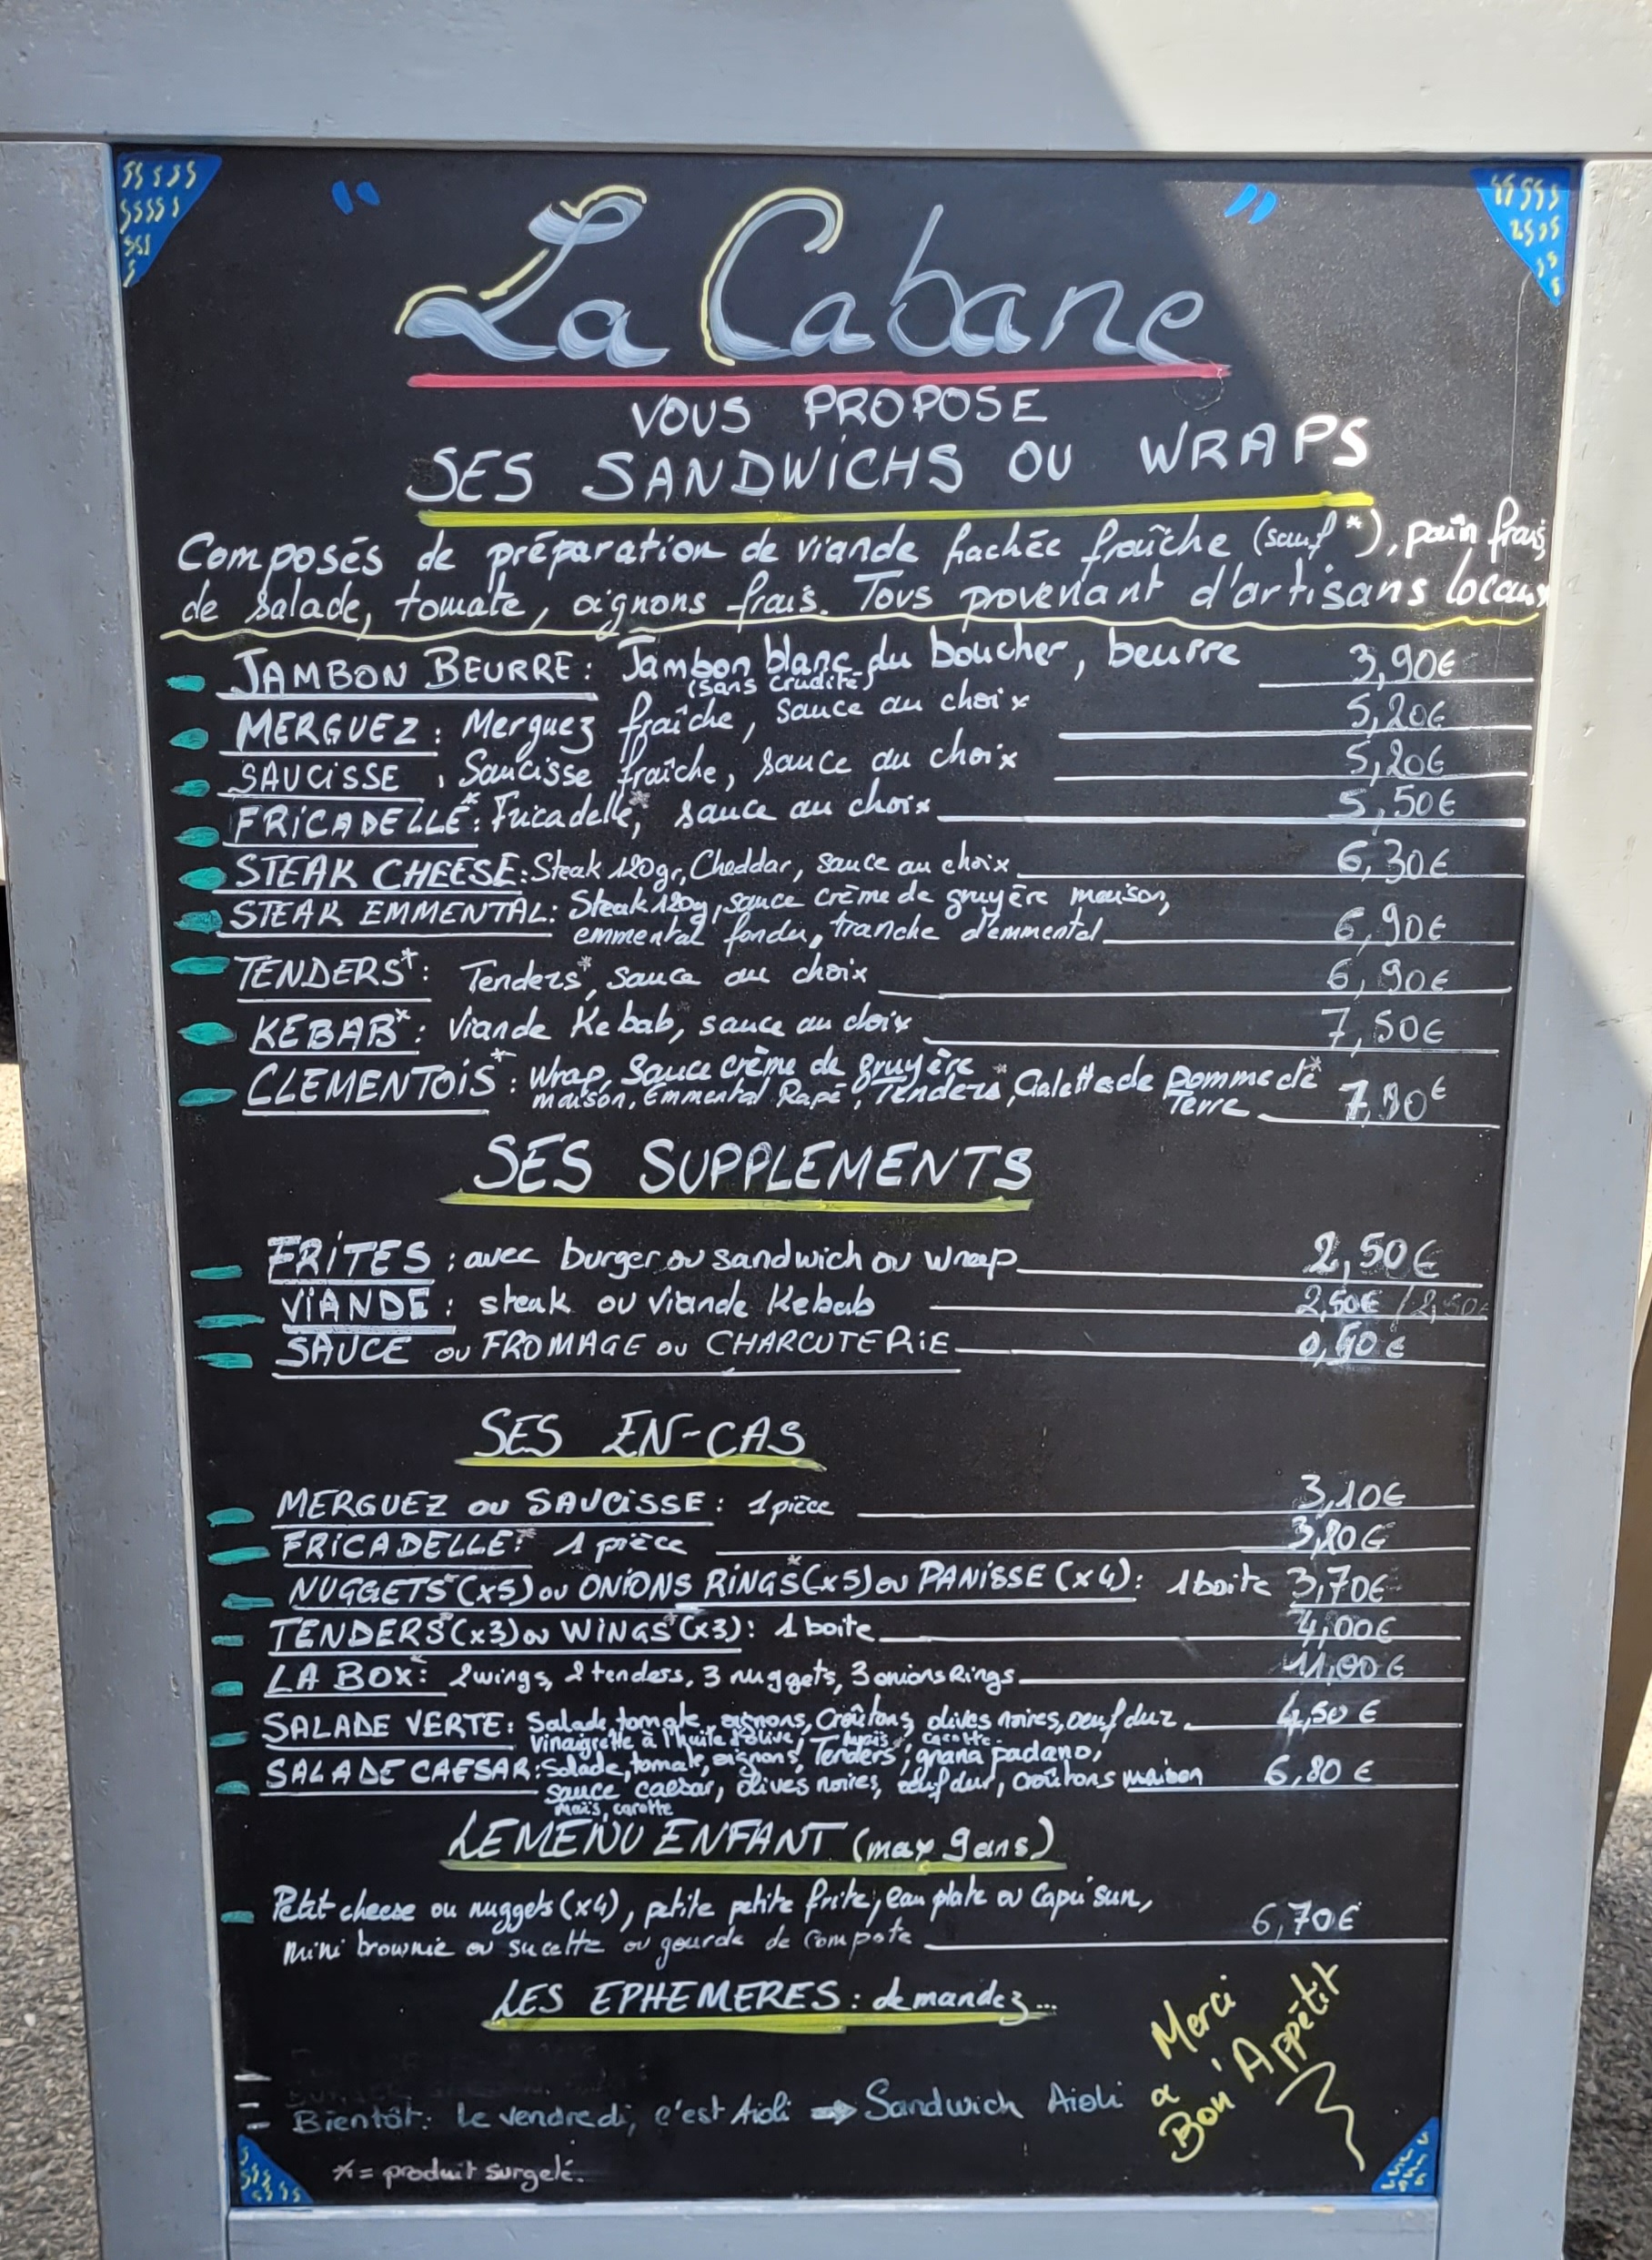 " La Cabane "
VOUS PROPOSE
SES SANDWICHS OU WRAPS
Composés de préparation de viande hachée fraîche (sauf *), pain frais,
de salade, tomate, oignons frais. Tous provenant d'artisans locaux
JAMBON BEURRE : Jambon blanc du boucher, beurre 3,90€
(sans crudité)
MERGUEZ : Merguez fraîche, sauce au choix 5,20€
SAUCISSE : Saucisse fraîche, sauce au choix 5,20€
FRICADELLE* : Fricadelle*, sauce au choix 5,50€
STEAK CHEESE : Steak 120gr, Cheddar, sauce au choix 6,30€
STEAK EMMENTAL : Steak 120g, sauce crème de gruyère maison,
emmental fondu, tranche d'emmental 6,90€
TENDERS* : Tenders*, sauce au choix 6,90€
KEBAB* : Viande Kebab, sauce au choix 7,50€
CLEMENTOIS* : Wrap, Sauce crème de gruyère
maison, Emmental Rapé, Tenders*, Galettes de pomme de*
Terre 7,90€
SES SUPPLEMENTS
FRITES : avec burger ou sandwich ou wrap 2,50€
VIANDE : steak ou viande Kebab 2,50€ / 2,50€
SAUCE ou FROMAGE ou CHARCUTERIE
SES EN-CAS
MERGUEZ ou SAUCISSE : 1 pièce 3,10€
FRICADELLE* : 1 pièce 3,20€
NUGGETS*(x5) ou ONIONS RINGS*(x5) ou PANISSE (x4) : 1 boite 3,70€
TENDERS*(x3) ou WINGS*(x3) : 1 boite 4,00€
LA BOX* : 2 wings, 2 tenders, 3 nuggets, 3 onions Rings 11,00€
SALADE VERTE : Salade, tomate, oignons, Croûtons, olives noires, oeuf dur 4,50€
Vinaigrette à l'huile d'olive, maïs, carotte
SALADE CAESAR : Salade, tomate, oignons, Tenders*, grana padano,
sauce caesar, olives noires, oeuf dur, croûtons maison 6,80€
maïs, carotte
LE MENU ENFANT (max 9 ans)
Petit cheese ou nuggets (x4), petite petite frite, eau plate ou Capri sun,
mini brownie ou sucette ou gourde de compote 6,70€
LES EPHEMERES : demandez...
Bientôt : Le vendredi, c'est Aïoli ➔ Sandwich Aïoli
Merci
&
Bon Appétit
* = produit surgelé.